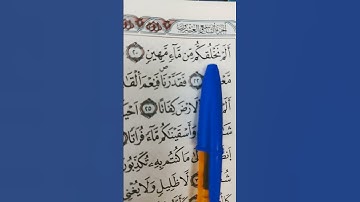 الجزء التاسع والعشرون
أَلَمْ نَخْلُقكُّم مِّن مَّآءٍ مَّهِينٍ ٢٠
ص
٢٢ فَقَدَرْنَا فَنِعْمَ ٱلْقَـ
ٱلْأَرْضَ كِفَاتًا ٢٥ أَحْيَـ
وَأَسْقَيْنَـٰكُم مَّآءً فُرَاتًا
مَا كُنتُم بِهِۦ تُكَذِّبُو
لَّا ظَلِيلٍ وَلَا يُغْنِى